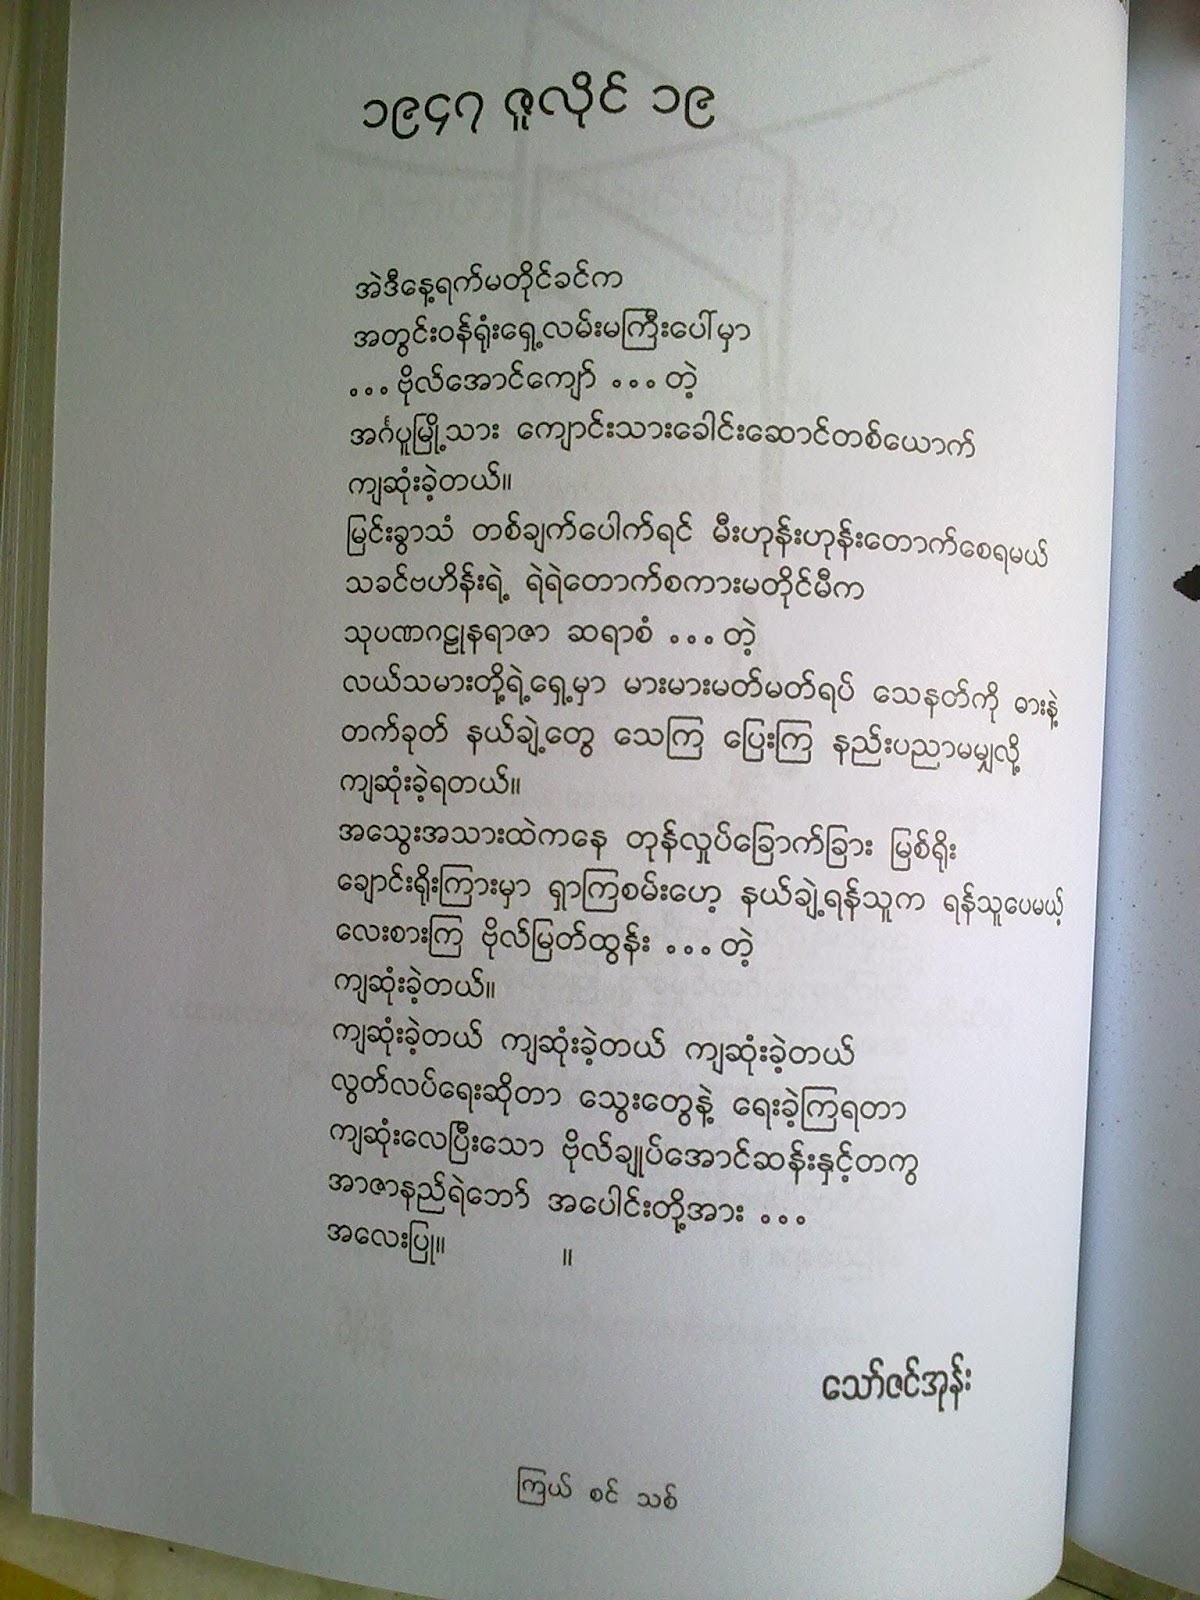 ၁၉၄၇ ဇူလိုင် ၁၉
အဲဒီနေ့ရက်မတိုင်ခင်က
အတွင်းဝန်ရုံးရှေ့လမ်းမကြီးပေါ်မှာ
... ဗိုလ်အောင်ကျော် ... တဲ့
အင်္ဂပူမြို့သား ကျောင်းသားခေါင်းဆောင်တစ်ယောက်
ကျဆုံးခဲ့တယ်။
မြင်းခွာသံ တစ်ချက်ပေါက်ရင် မီးဟုန်းဟုန်းတောက်စေရမယ်
သခင်ဗဟိန်းရဲ့ ရဲရဲတောက်စကားမတိုင်မီက
သုပဏဂဠုနရာဇာ ဆရာစံ ... တဲ့
လယ်သမားတို့ရဲ့ရှေ့မှာ မားမားမတ်မတ်ရပ် သေနတ်ကို ဓားနဲ့
တက်ခုတ် နယ်ချဲ့တွေ သေကြ ပြေးကြ နည်းပညာမမျှလို့
ကျဆုံးခဲ့ရတယ်။
အသွေးအသားထဲကနေ တုန်လှုပ်ခြောက်ခြား မြစ်ရိုး
ချောင်းရိုးကြားမှာ ရှာကြစမ်းဟေ့ နယ်ချဲ့ရန်သူက ရန်သူပေမယ့်
လေးစားကြ ဗိုလ်မြတ်ထွန်း ... တဲ့
ကျဆုံးခဲ့တယ်။
ကျဆုံးခဲ့တယ် ကျဆုံးခဲ့တယ် ကျဆုံးခဲ့တယ်
လွတ်လပ်ရေးဆိုတာ သွေးတွေနဲ့ ရေးခဲ့ကြရတာ
ကျဆုံးလေပြီးသော ဗိုလ်ချုပ်အောင်ဆန်းနှင့်တကွ
အာဇာနည်ရဲဘော် အပေါင်းတို့အား ...
အလေးပြု။ ။
သော်ဇင်အုန်း
ကြယ် စင် သစ်